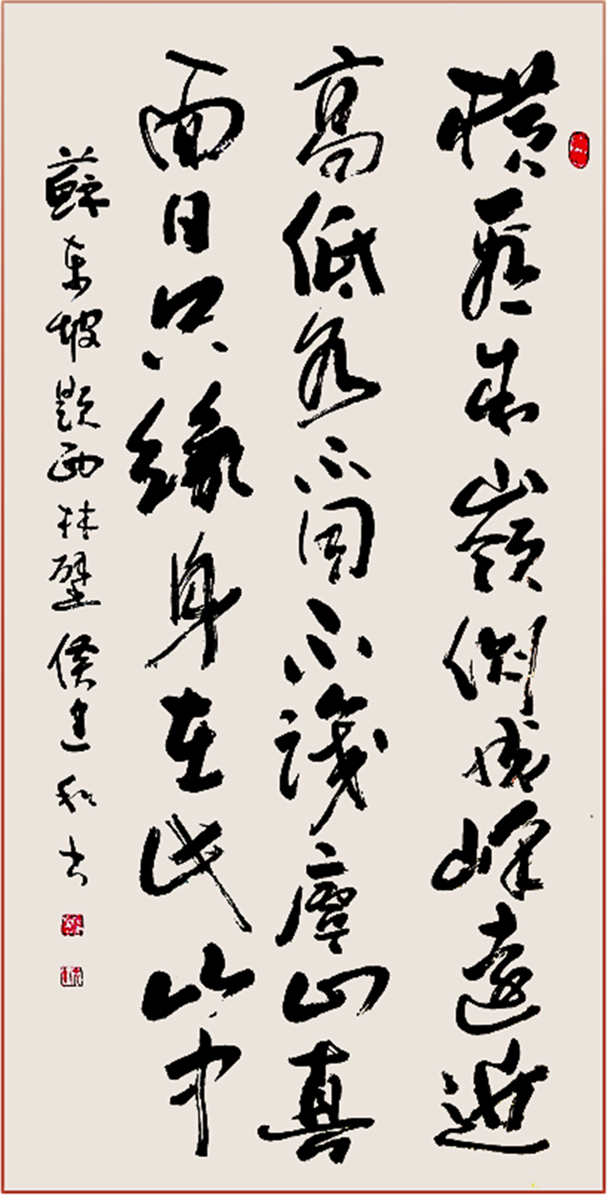 橫看成嶺側成峰遠近
高低各不同不識廬山真
面目只緣身在此山中
蘇東坡題西林壁侯建和书